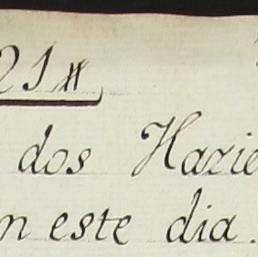 21#
dos Hazie
n este dia.